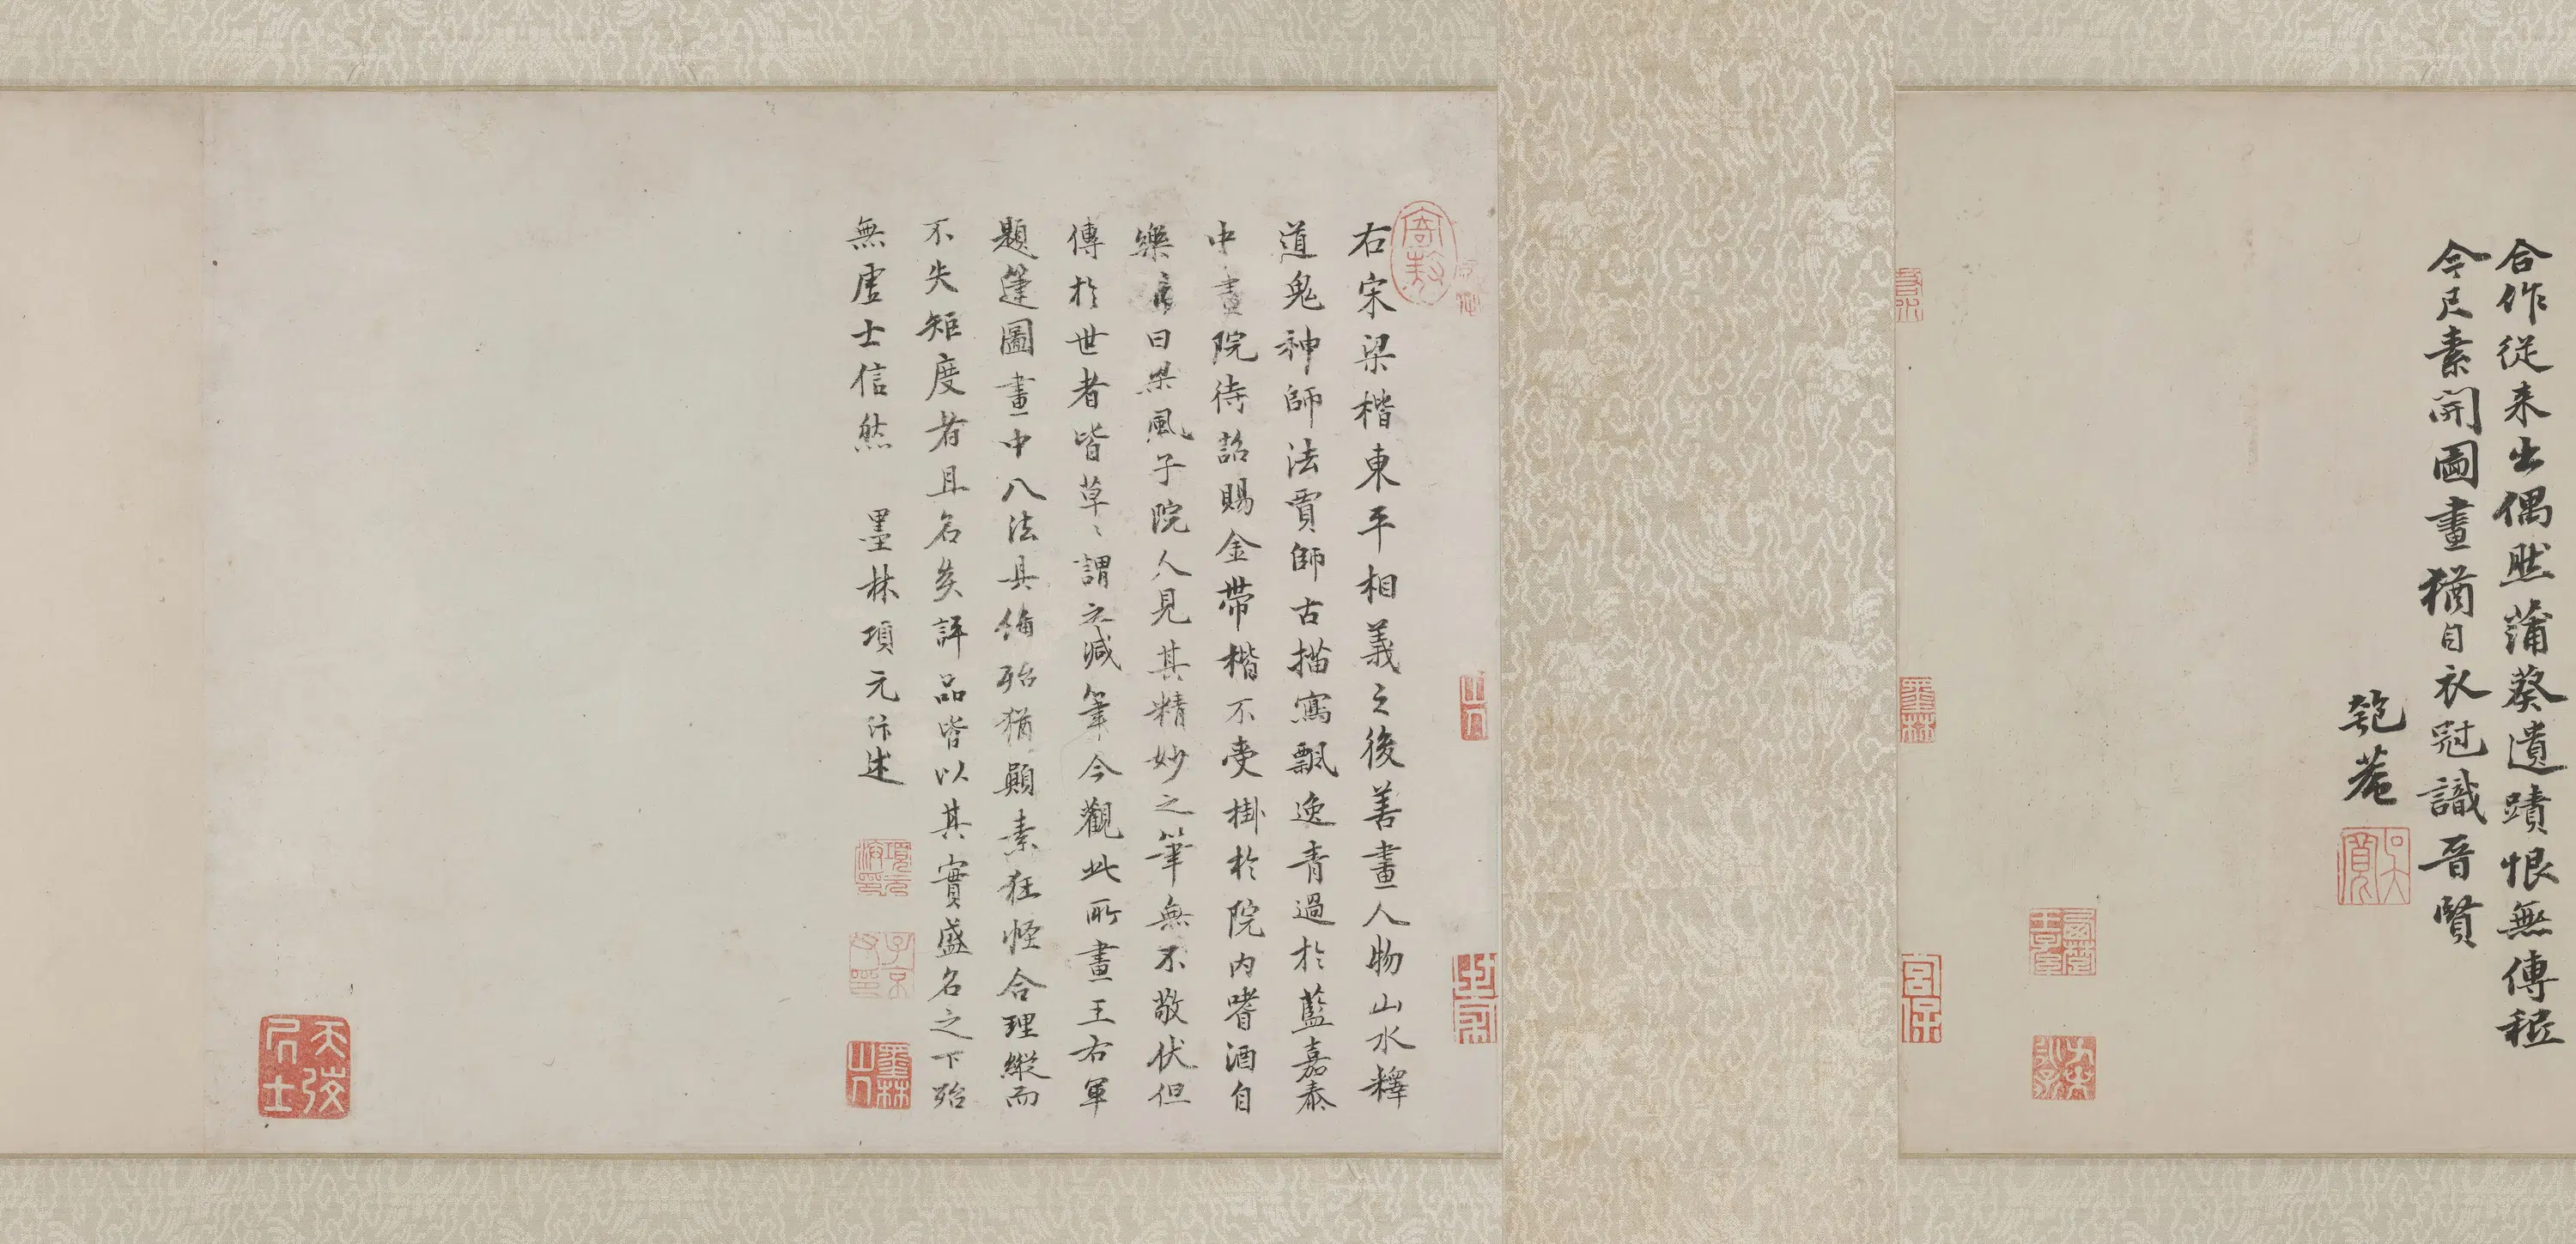 合作從来出偶然蒲葵遺蹟恨無傳
今尺素開圖畫猶自衣冠識晉賢
匏菴
吳寬
右宋梁楷東平相義之後善畫人物山水釋
道鬼神師法賈師古描寫飄逸青過於藍嘉泰
中畫院待詔賜金帶楷不受掛於院内嗜酒自
樂号曰梁風子院人見其精妙之筆無不敬伏但
傳於世者皆草〻謂之減筆今觀此所畫王右軍
題篷圖畫中八法具備殆猶顛素狂怪合理縱而
不失矩度者且名矣評品皆以其實盛名之下殆
無虛士信然 墨林項元汴述
項元汴印
子京父印
墨林山人
天弢居士